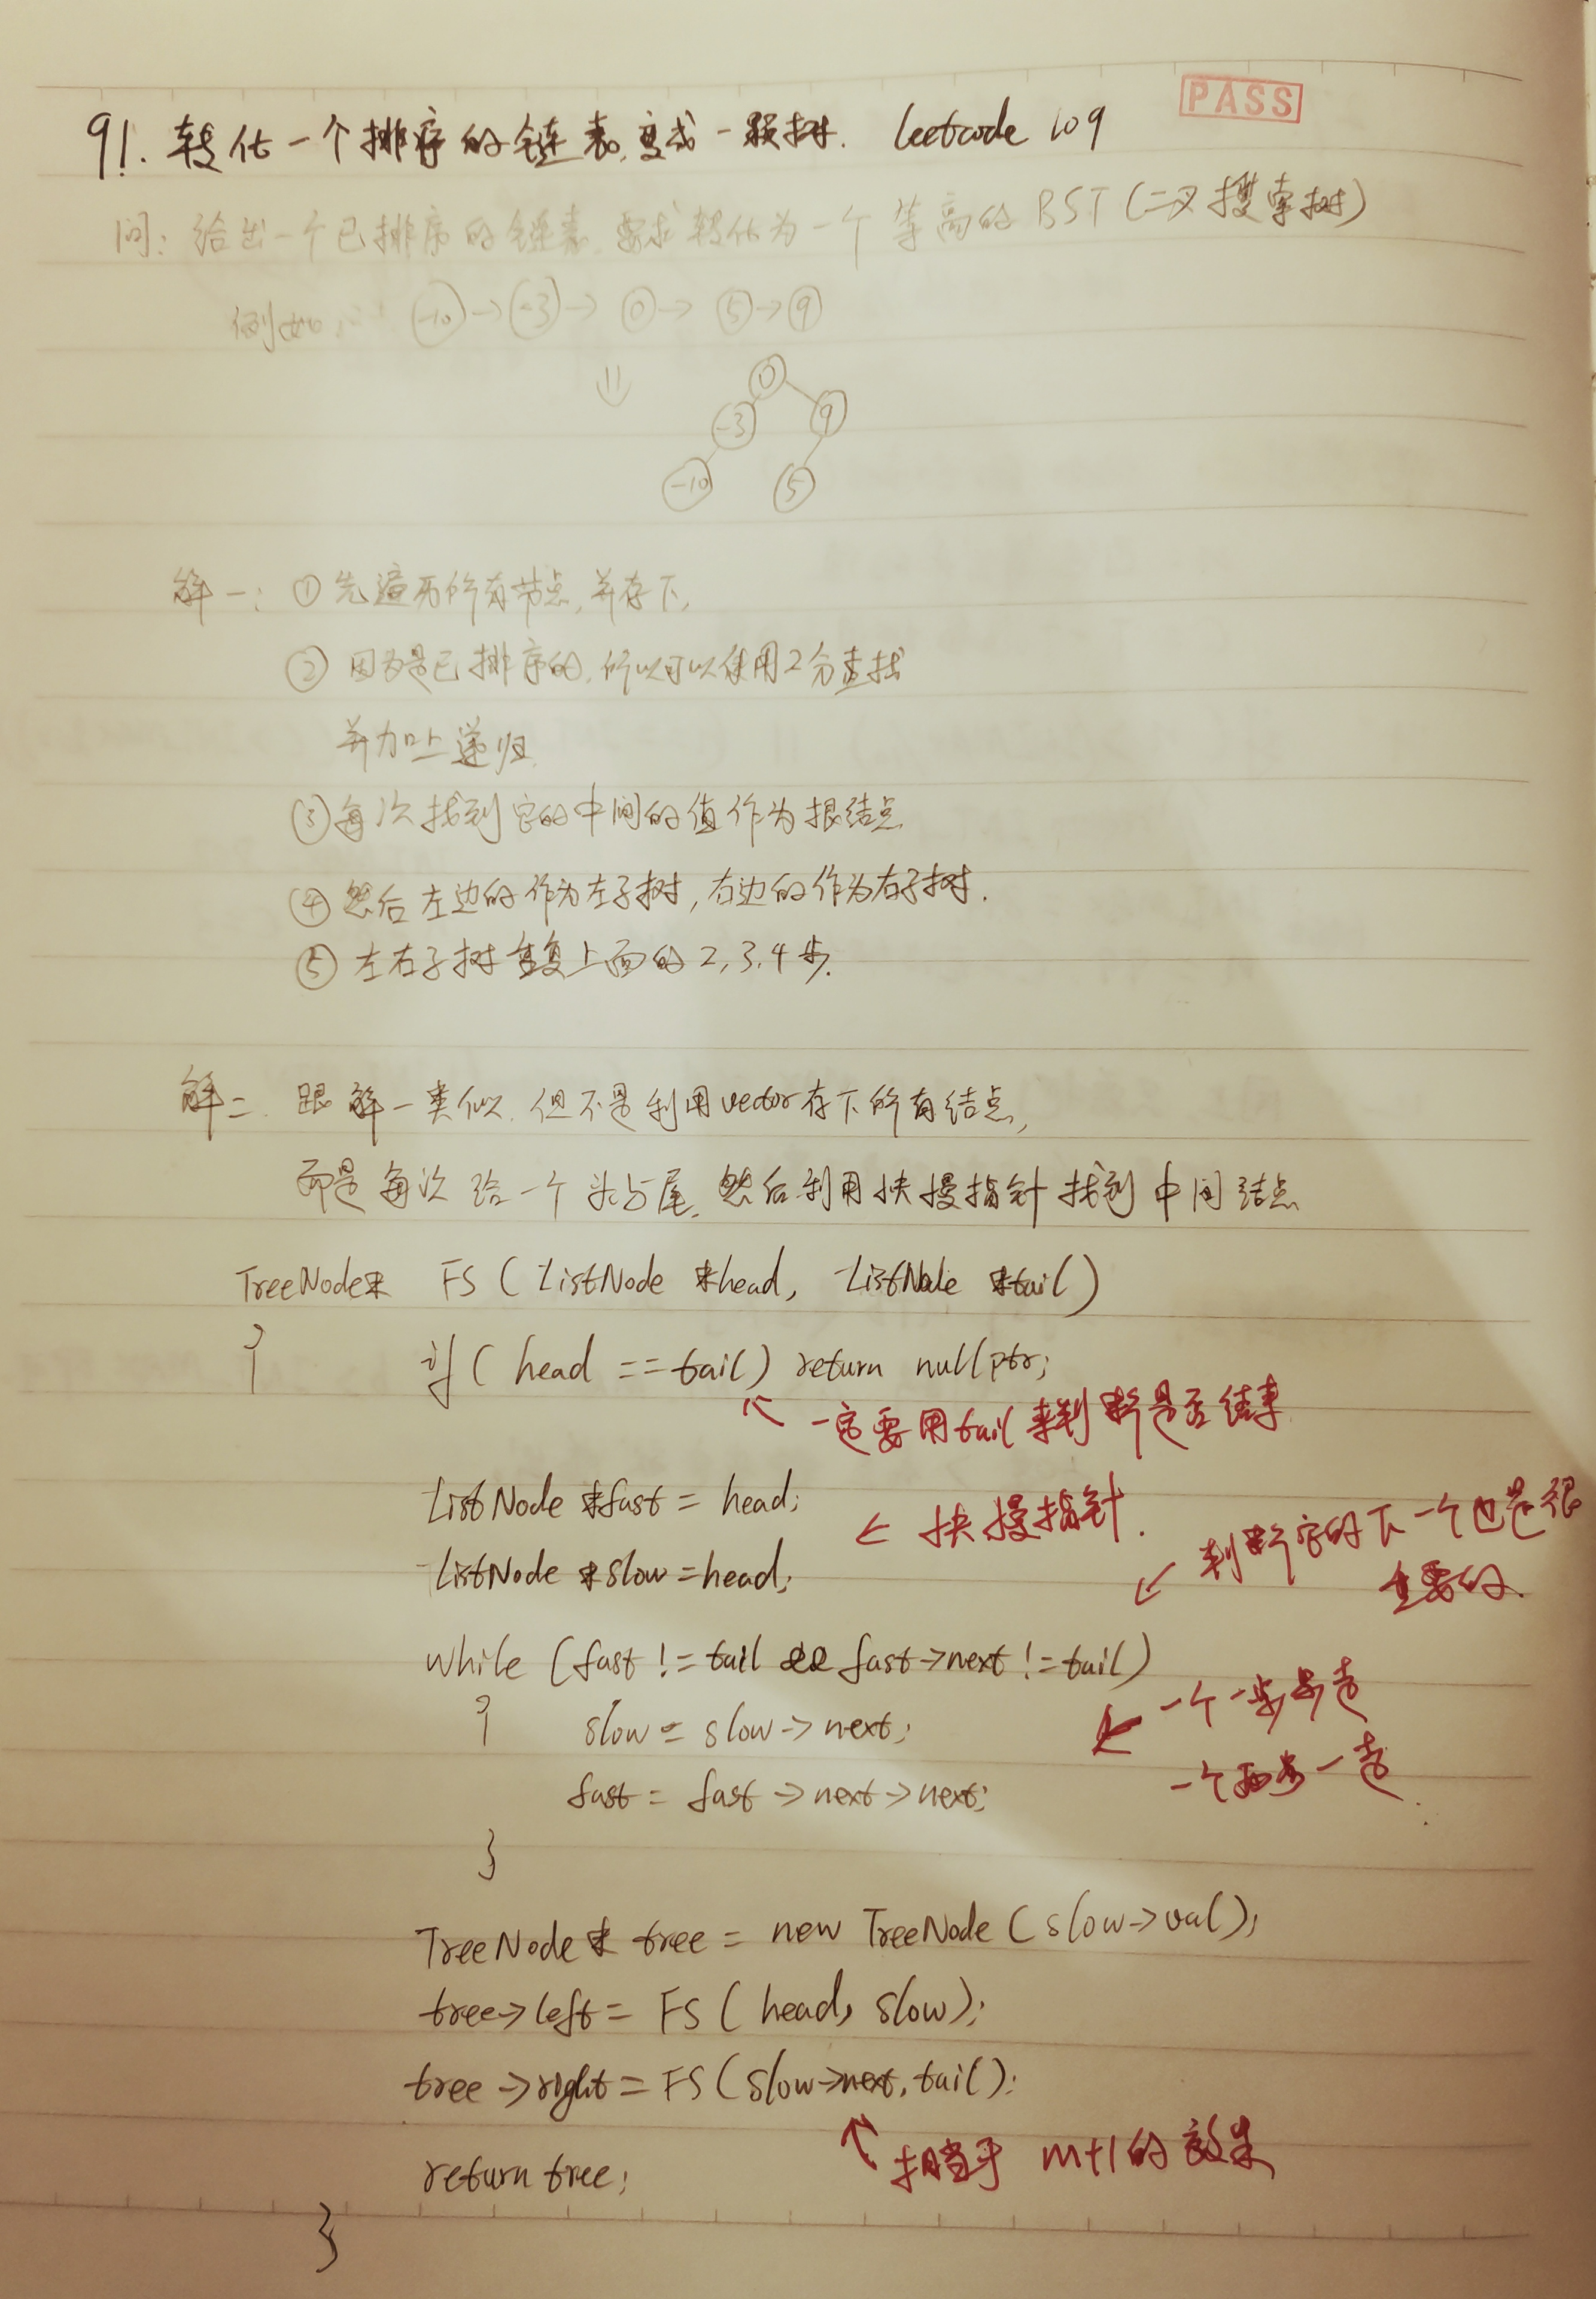 PASS
91. 转化一个排序的链表,变成一颗树. leetcode 109
问: 给出一个已排序的链表,要求转化为一个等高的BST(二叉搜索树)
例如: -10→-3→0→5→9
⇓
0
-3 9
-10 5
解一: ①先遍历所有节点,并存下,
② 因为是已排序的,所以可以使用2分查找
并加上递归
③每次找到它的中间的值作为根结点
④然后左边的作为左子树,右边的作为右子树.
⑤左右子树重复上面的2,3,4步.
解二. 跟解一类似.但不是利用vector存下所有结点,
而是每次给一个头与尾.然后利用快慢指针找到中间结点
TreeNode* FS(ListNode *head, ListNode *tail)
{ if(head==tail) return nullptr;
↖ 一定要用tail来判断是否结束
ListNode *fast = head;
← 快慢指针.
ListNode *slow=head;
↙ 判断它的下一个也是很
重要的.
while (fast != tail && fast->next != tail)
{ slow = slow->next;
← 一个一步步走
fast = fast->next->next;
一个两步一走
}
TreeNode* tree = new TreeNode(slow->val);
tree->left = FS(head, slow);
tree->right = FS(slow->next, tail);
↖ 相当于 m+1的效果
return tree;
}